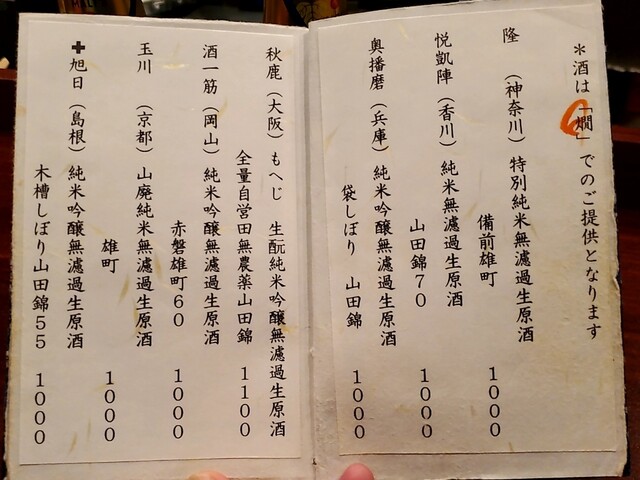 ＊酒は「燗」でのご提供となります
隆　（神奈川）特別純米無濾過生原酒
備前雄町　１０００
悦凱陣（香川）純米無濾過生原酒
山田錦７０　１０００
奥播磨（兵庫）純米吟醸無濾過生原酒
袋しぼり　山田錦　１０００
秋鹿（大阪）もへじ　生酛純米吟醸無濾過生原酒
全量自営田無農薬山田錦　１１００
酒一筋（岡山）純米吟醸無濾過生原酒
赤磐雄町６０　１０００
玉川　（京都）山廃純米無濾過生原酒
雄町　１０００
✚旭日（島根）純米吟醸無濾過生原酒
木槽しぼり山田錦５５　１０００